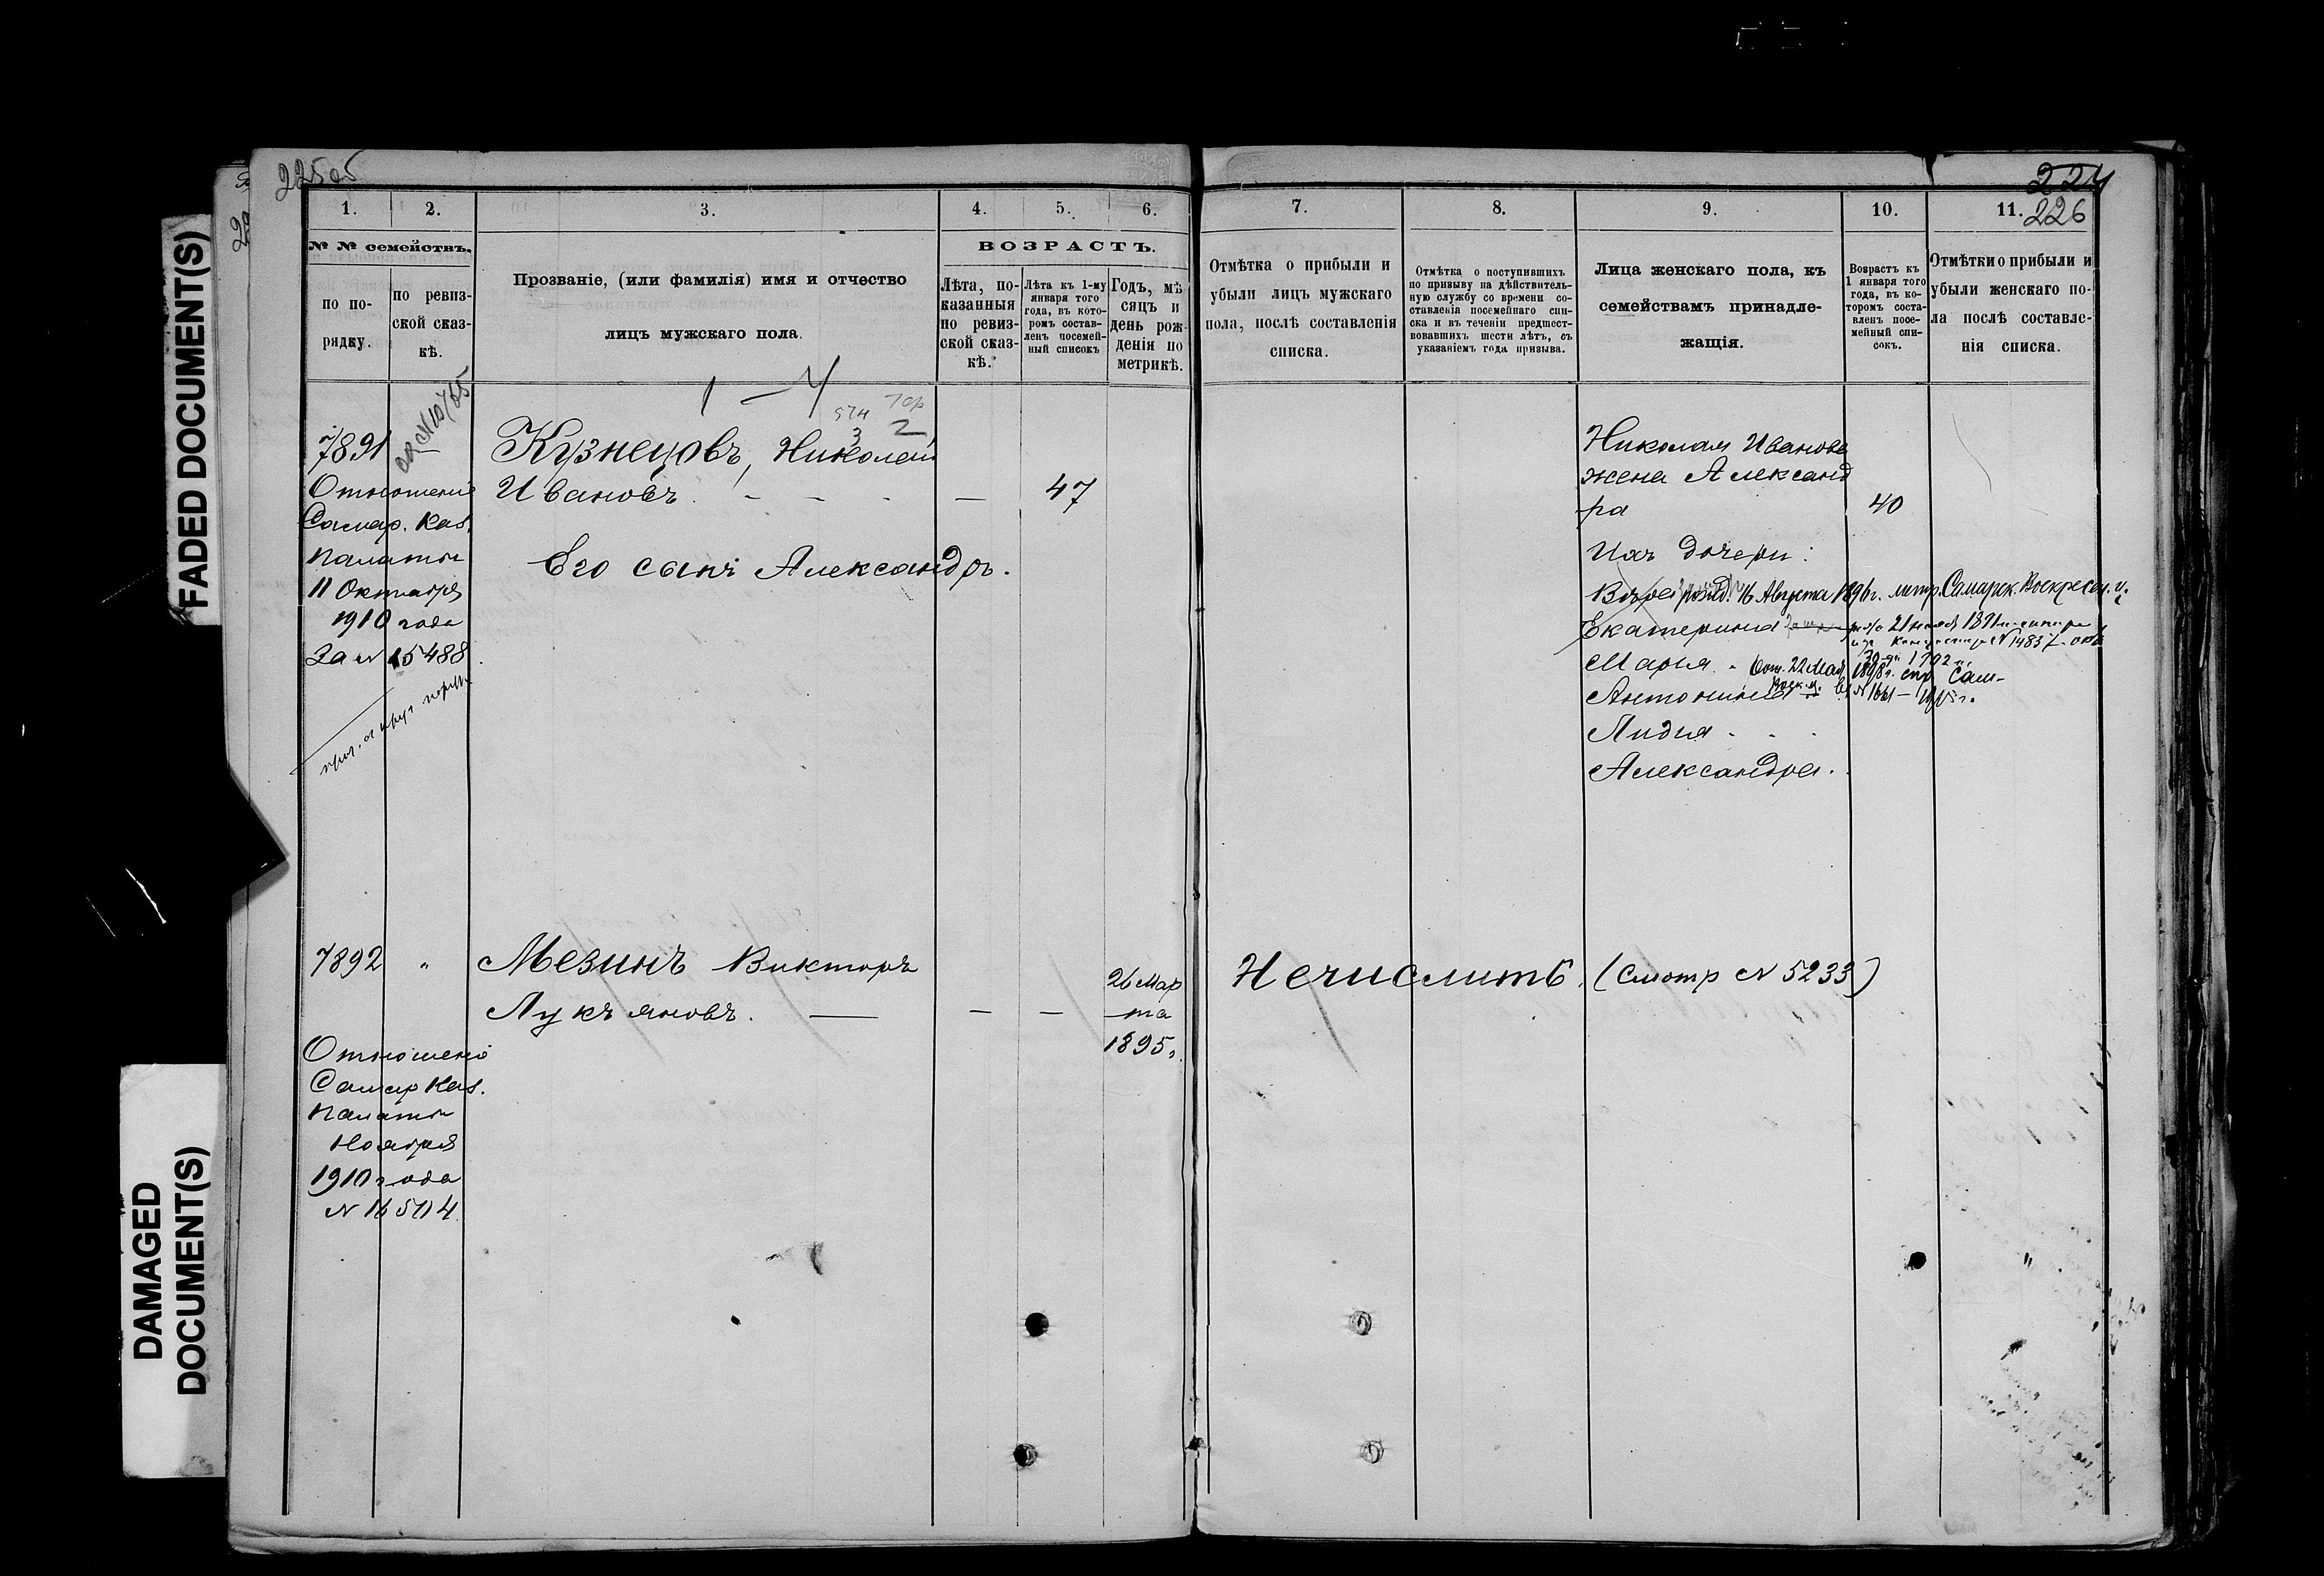 FADED DOCUMENT(S)
DAMAGED
DOCUMENT(S)
225об
224
226
1. 2. 3. 4. 5. 6. 7. 8. 9. 10. 11.
№ № семействъ.
по по-
рядку.
по ревиз-
ской сказ-
кѣ.
Прозваніе, (или фамилія) имя и отчество
лицъ мужскаго пола.
ВОЗРАСТЪ.
Лѣта, по-
казанныя
по ревиз-
ской сказ-
кѣ.
Лѣта къ 1-му
января того
года, въ кото-
ромъ состав-
ленъ посемей-
ный списокъ
Годъ, мѣ
сяцъ и
день рож-
денія по
метрикѣ.
Отмѣтка о прибыли и
убыли лицъ мужскаго
пола, послѣ составленія
списка.
Отмѣтка о поступившихъ
по призыву на дѣйствитель-
ную службу со времени со-
ставленія посемейнаго спи-
ска и въ теченіи предшест-
вовавшихъ шести лѣтъ, съ
указаніемъ года призыва.
Лица женскаго пола, къ
семействамъ принадле-
жащія.
Возрастъ къ
1 января того
года, въ ко-
торомъ соста-
вленъ посе-
мейный спи-
сокъ.
Отмѣтки о прибыли и
убыли женскаго по-
ла послѣ составле-
нія списка.
1 — 4
3 2
7891
№ 10765
Отношеніе
Самар. Каз.
палаты
11 Октября
1910 года
За № 15488
Кузнецовъ, Николай
Ивановъ. — 47
Его сынъ Александръ.
Николая Иванова
жена Александ
ра 40
Ихъ дочери:
Вѣра рожд. 16 Августа 1896 г. метр. Самарск. Воскресен. ц.
Екатерина
№ 14837
1902 г.
Марія . 22 Мая 1898 г. Сам-
Антонина № 1661
Лидія . .
Александра.
7892 "
Мезинъ Викторъ
Лукъяновъ. — — —
26 Мар
та
1895 г.
Нечислить. (Смотр № 5233)
Отношеніе
Самар Каз.
палаты
Ноября
1910 года
№ 16504